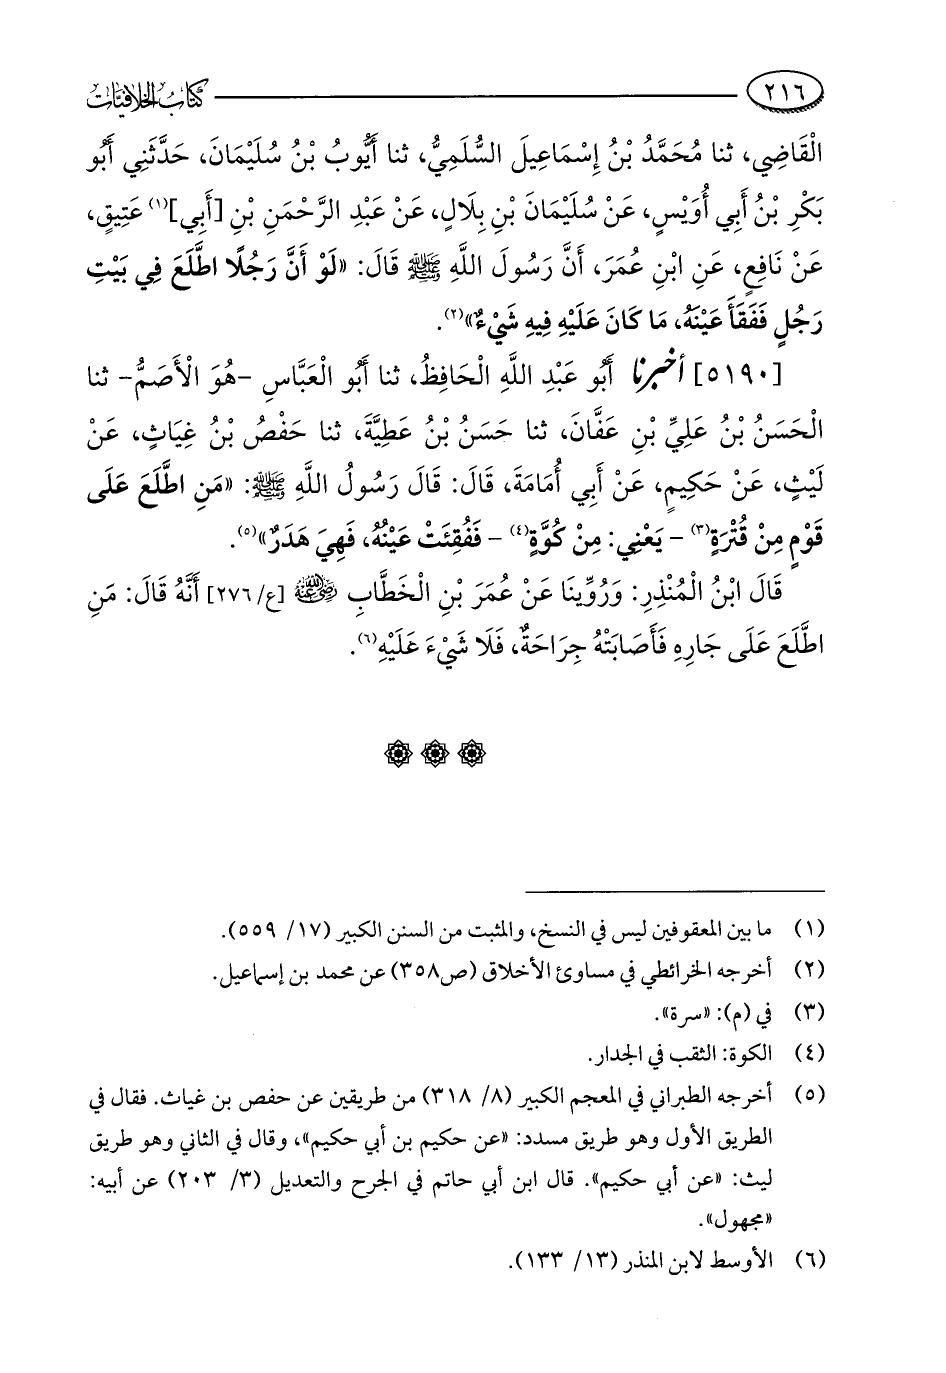 ٢١٦ كتاب الخلافيات
الْقَاضِي، ثنا مُحَمَّدُ بْنُ إِسْمَاعِيلَ السُّلَمِيُّ، ثنا أَيُّوبُ بْنُ سُلَيْمَانَ، حَدَّثَنِي أَبُو
بَكْرِ بْنُ أَبِي أُوَيْسٍ، عَنْ سُلَيْمَانَ بْنِ بِلَالٍ، عَنْ عَبْدِ الرَّحْمَنِ بْنِ [أَبِي](١) عَتِيقٍ،
عَنْ نَافِعٍ، عَنِ ابْنِ عُمَرَ، أَنَّ رَسُولَ اللَّهِ ﷺ قَالَ: «لَوْ أَنَّ رَجُلًا اطَّلَعَ فِي بَيْتِ
رَجُلٍ فَفَقَأَ عَيْنَهُ، مَا كَانَ عَلَيْهِ فِيهِ شَيْءٌ»(٢).
[٥١٩٠] أخبرنا أَبُو عَبْدِ اللَّهِ الْحَافِظُ، ثنا أَبُو الْعَبَّاسِ -هُوَ الْأَصَمُّ- ثنا
الْحَسَنُ بْنُ عَلِيِّ بْنِ عَفَّانَ، ثنا حَسَنُ بْنُ عَطِيَّةَ، ثنا حَفْصُ بْنُ غِيَاثٍ، عَنْ
لَيْثٍ، عَنْ حَكِيمٍ، عَنْ أَبِي أُمَامَةَ، قَالَ: قَالَ رَسُولُ اللَّهِ ﷺ: «مَنِ اطَّلَعَ عَلَى
قَوْمٍ مِنْ قُتْرَةٍ(٣) - يَعْنِي: مِنْ كُوَّةٍ(٤) - فَفُقِئَتْ عَيْنُهُ، فَهِيَ هَدَرٌ»(٥).
قَالَ ابْنُ الْمُنْذِرِ: وَرُوِّينَا عَنْ عُمَرَ بْنِ الْخَطَّابِ رضي الله عنه [ع/ ٢٧٦] أَنَّهُ قَالَ: مَنِ
اطَّلَعَ عَلَى جَارِهِ فَأَصَابَتْهُ جِرَاحَةٌ، فَلَا شَيْءَ عَلَيْهِ(٦).
(١) ما بين المعقوفين ليس في النسخ، والمثبت من السنن الكبير (١٧/ ٥٥٩).
(٢) أخرجه الخرائطي في مساوئ الأخلاق (ص٣٥٨) عن محمد بن إسماعيل.
(٣) في (م): «سرة».
(٤) الكوة: الثقب في الجدار.
(٥) أخرجه الطبراني في المعجم الكبير (٨/ ٣١٨) من طريقين عن حفص بن غياث. فقال في
الطريق الأول وهو طريق مسدد: «عن حكيم بن أبي حكيم»، وقال في الثاني وهو طريق
ليث: «عن أبي حكيم». قال ابن أبي حاتم في الجرح والتعديل (٣/ ٢٠٣) عن أبيه:
«مجهول».
(٦) الأوسط لابن المنذر (١٣/ ١٣٣).